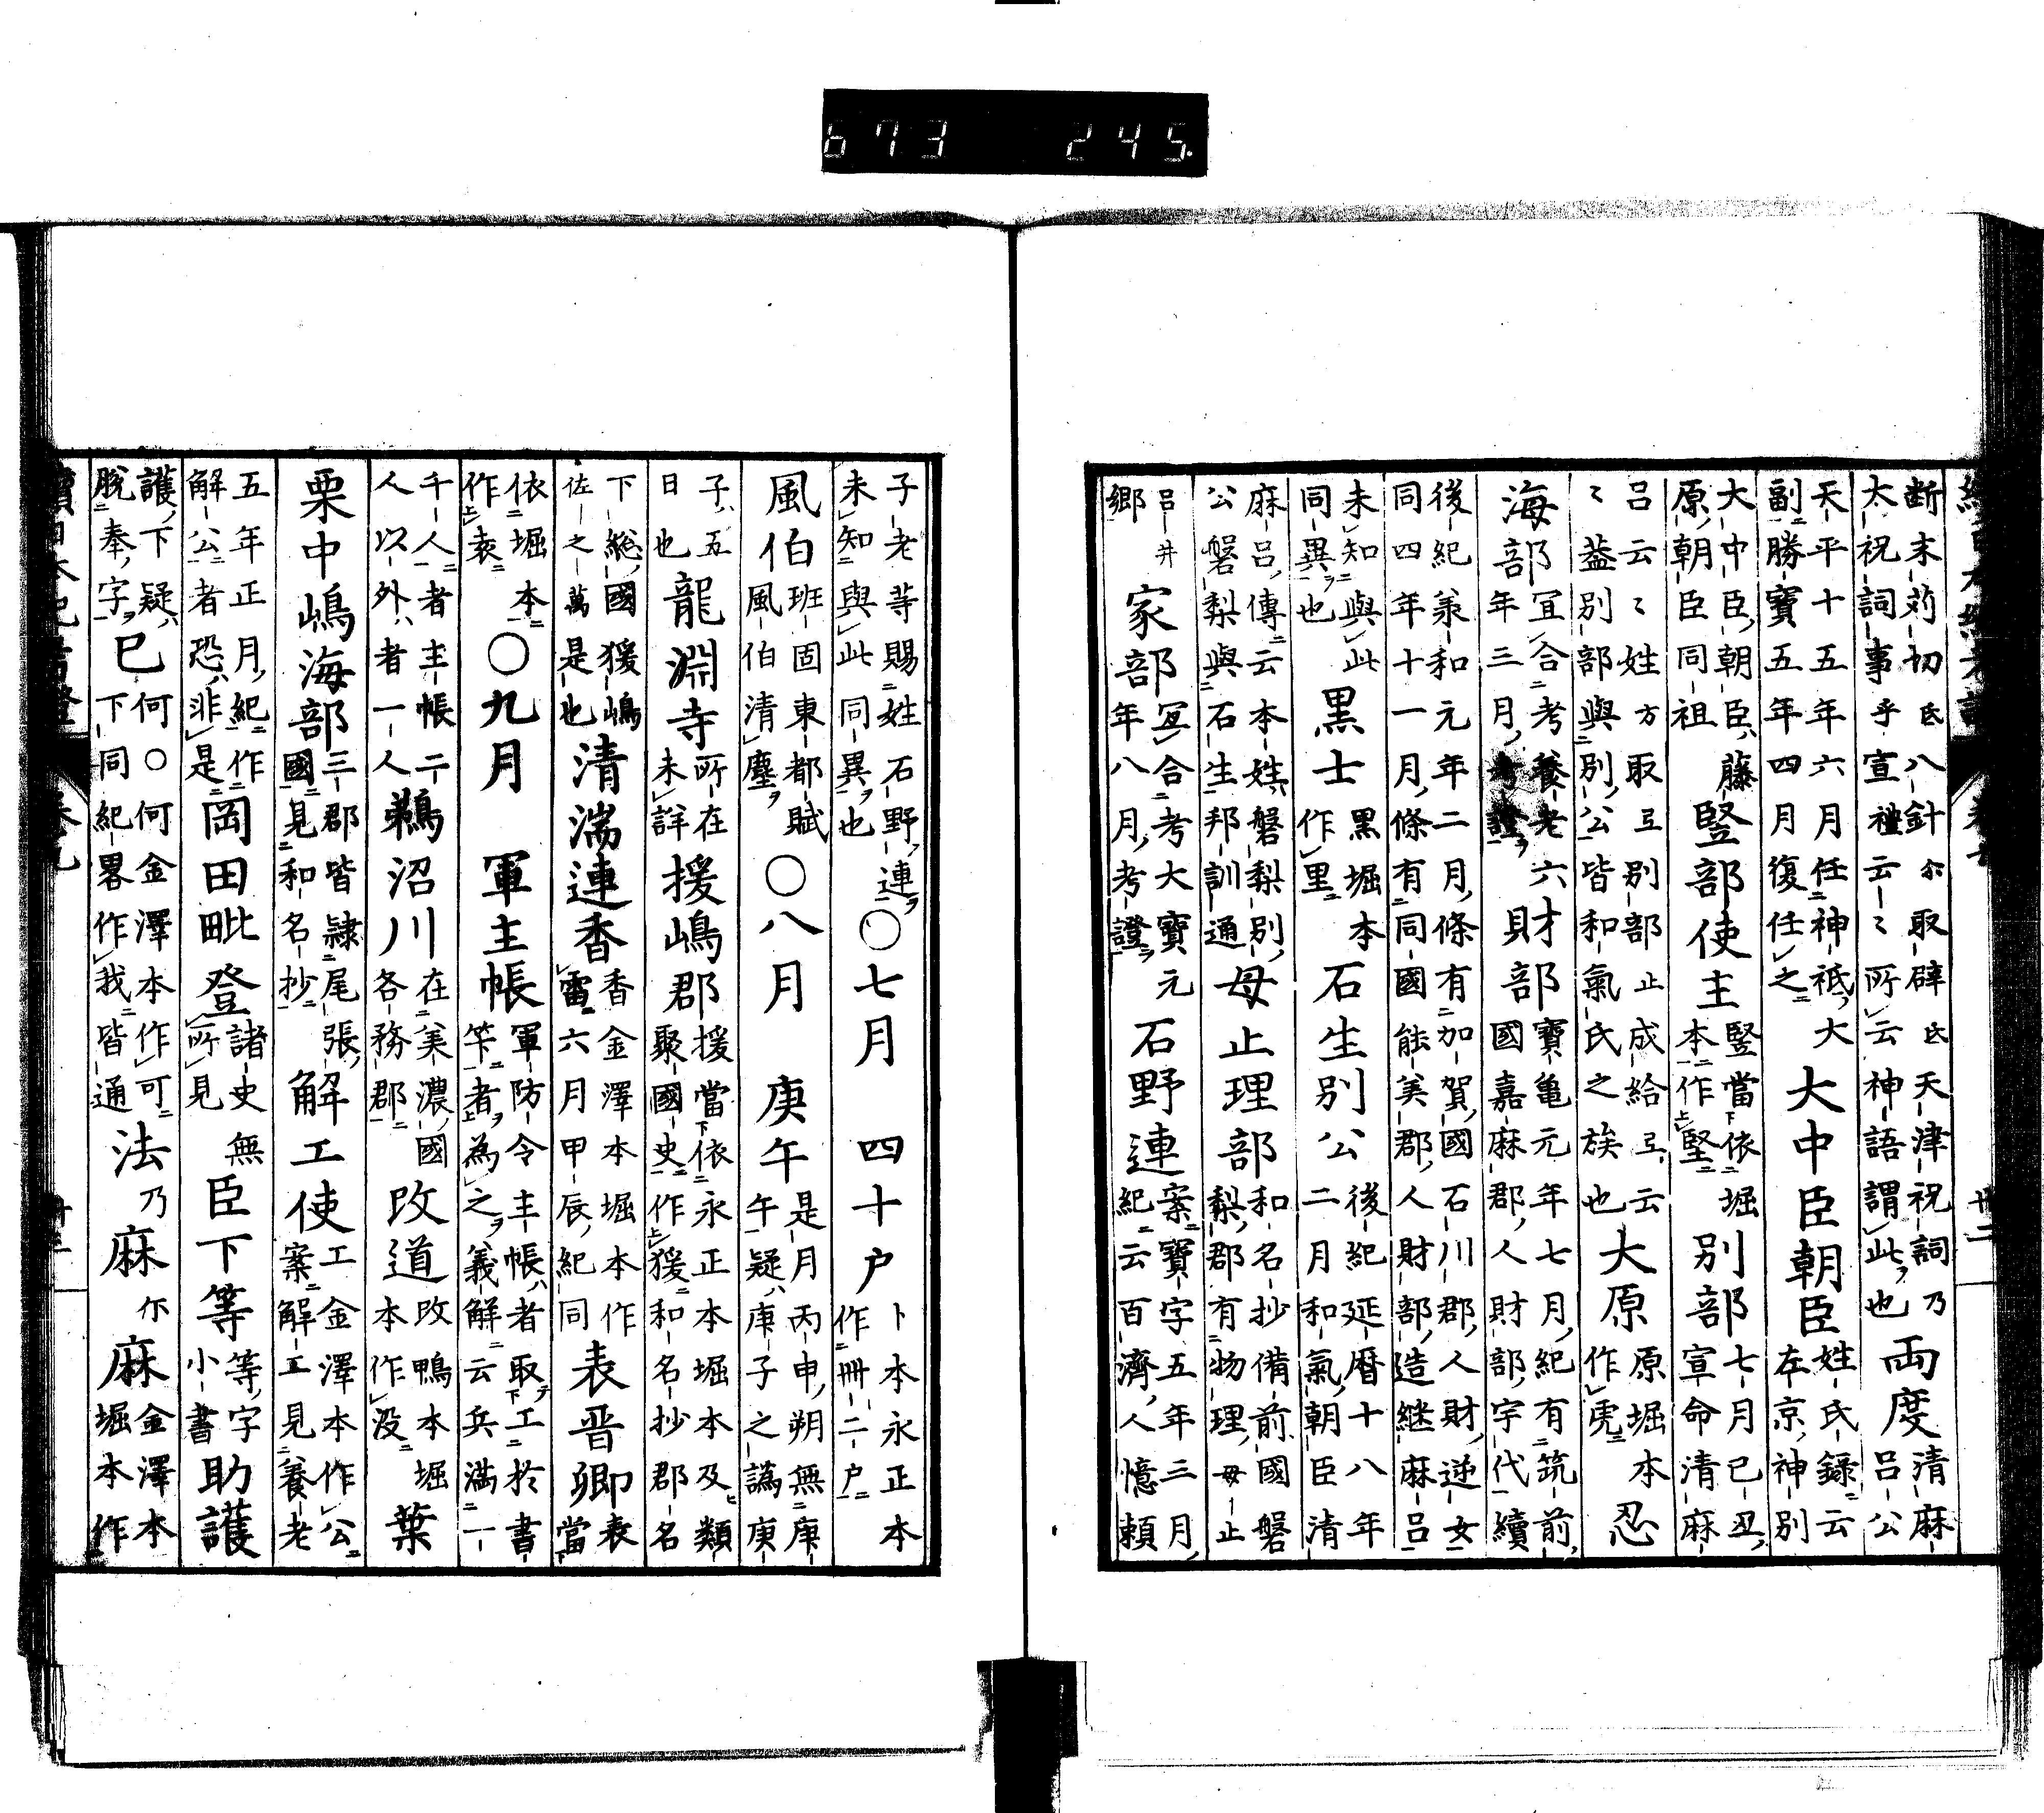 673 245.
断末苅切𫞉八針尓取辟𫞉天津祝詞乃
太祝詞事乎宣禮云〻所云神語謂此也
両度 清麻呂公
天平十五年六月任神祇大
副勝寶五年四月復任之
大中臣朝臣 姓氏録云左京神別
大中臣朝臣藤
原朝臣同祖
竪部使主 竪當依堀本作堅
別部 七月己丑宣命清麻
呂云〻姓方取弖別部止成給弖云
〻葢別部與別公皆和氣氏之族也
大原 原堀本作虎
忍
海部 冝合考養老六年三月考證
財部 寶亀元年七月紀有筑前國嘉麻郡人財部宇代續
後紀承和元年二月條有加賀國石川郡人財逆女
同四年十一月條有同國能美郡人財部造継麻呂
未知與此同異也
黒士 黒堀本作里
石生別公 後紀延暦十八年二月和氣朝臣清
麻呂傳云本姓磐梨別公磐梨與石生邦訓通
母止理部 和名抄備前國磐梨郡有物理母止
呂井郷
家部 冝合考大寶元年八月考證
石野連 案寶字五年三月紀云百濟人憶頼
子老等賜姓石野連
未知與此同異也
〇七月
四十戸 卜本永正本作卌二戸
風伯 班固東都賦風伯清塵
〇八月
庚午 是月丙申朔無庚午疑庚子之譌庚
子五日也
龍淵寺 所在未詳
援嶋郡 援當依永正本堀本及類聚國史作猨和名抄郡名
下總國猨嶋佐之萬是也
清湍連香 香金澤本堀本作雷六月甲辰紀同
表晋卿 表當
依堀本作袁
〇九月
軍主帳 軍防令主帳者取工於書筭者為之義解云兵滿一
千人者主帳二人以外者一人
鵜沼川 在美濃國各務郡
改道 改鴨本堀本作没
葉
栗中嶋海部 三郡皆隷尾張國見和名抄
解工使 工金澤本作公案解工見養老
五年正月紀作解公者恐非是
岡田毗登 諸史無所見
臣下等 等字小書
助護 金澤本
護下疑脱奉字
已 何〇何金澤本作可下同紀畧作我皆通
法 乃
麻 尓
麻 金澤本堀本作